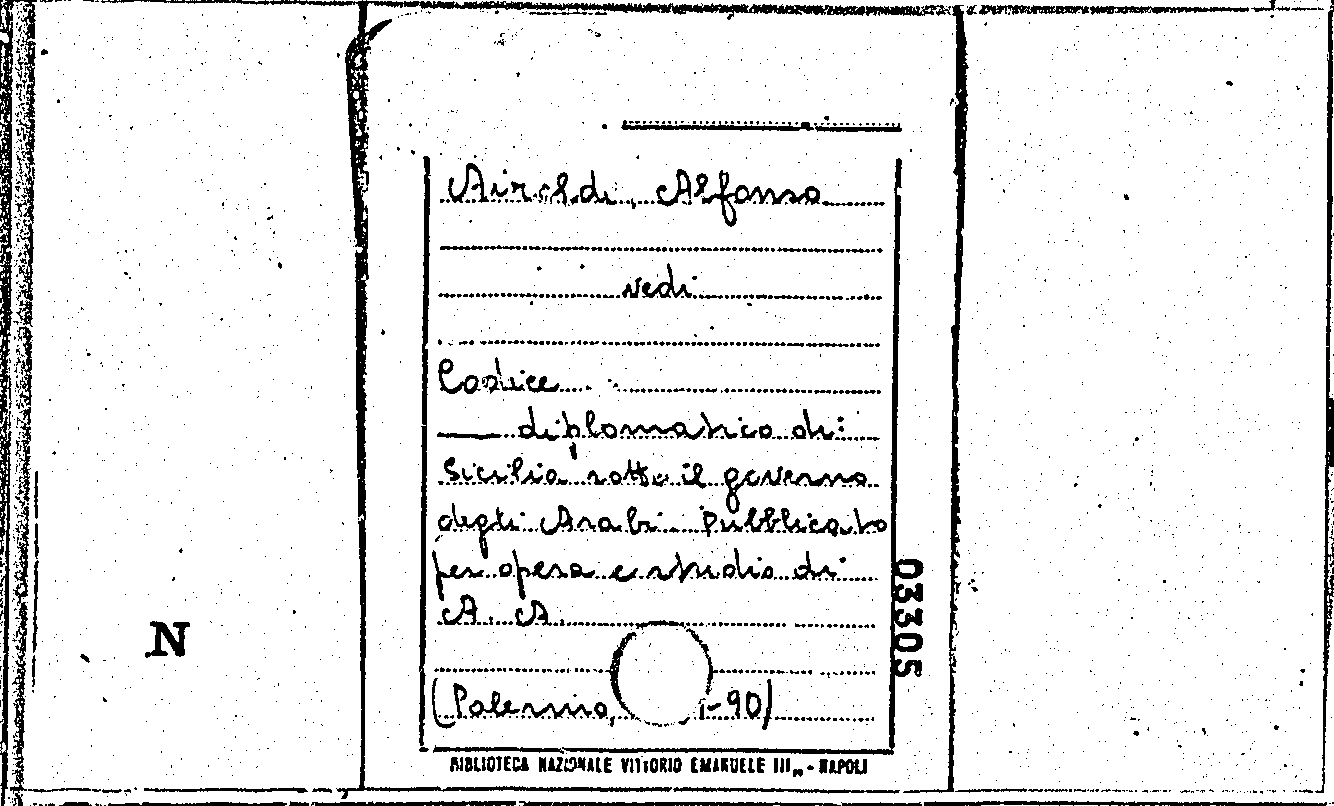 Airoldi, Alfonso
vedi
Codice
— diplomatico di
Sicilia sotto il governo
degli Arabi pubblicato
per opera e studio di
A. A.
(Palermo, -90)
BIBLIOTECA NAZIONALE VITTORIO EMANUELE III„ - NAPOLI
03305
N